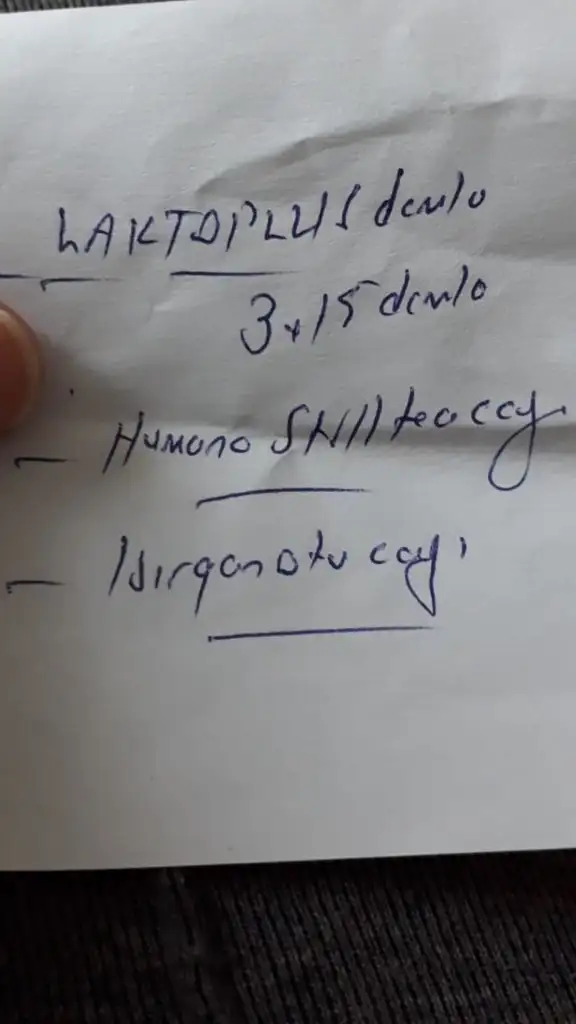 - LAKTOPLUS damla
3x15 damla
- Humana Still tea çay
- Isırgan otu çayı